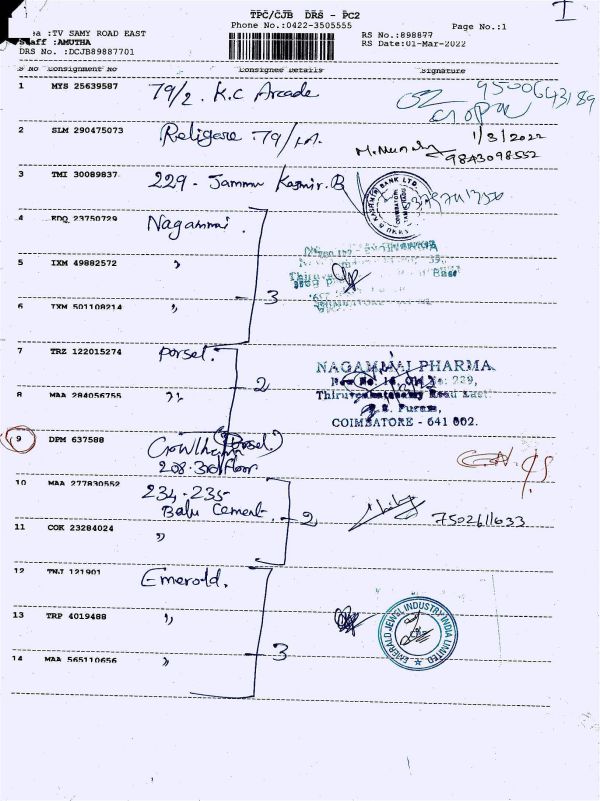 I
TPC/CJB DRS - PC2
Phone No.:0422-3505555 Page No.:1
ea :TV SAMY ROAD EAST RS No.:898877
Staff :AMUTHA RS Date:01-Mar-2022
DRS No. :DCJB89887701
S No Consignment No Consignee Details Signature
1 MYS 25639587 79/2. K.C Arcade 9500643189
2 SLM 290475073 Religare. 79/ 1/3/2022
9843098552
3 TMI 30089837 229 - Jammu Kasmir. B
4 EDQ 23750729 Nagammai.
5 IXM 49882572 "
3
6 IXM 501108214 "
7 TRZ 122015274 porsel.
2
NAGAMMAI PHARMA
8 MAA 284056755 "
Thiruvenkatasamy Road East
R.S. Puram,
COIMBATORE - 641 002.
9 DPM 637588 (porsel)
208. 3rd floor
10 MAA 277830552 234. 235
Balu Cement. 2 7502611633
11 COK 23284024 "
12 TNJ 121901 Emerold.
13 TRP 4019488 "
EMERALD JEWEL INDUSTRY INDIA LIMITED
3
14 MAA 565110656 "